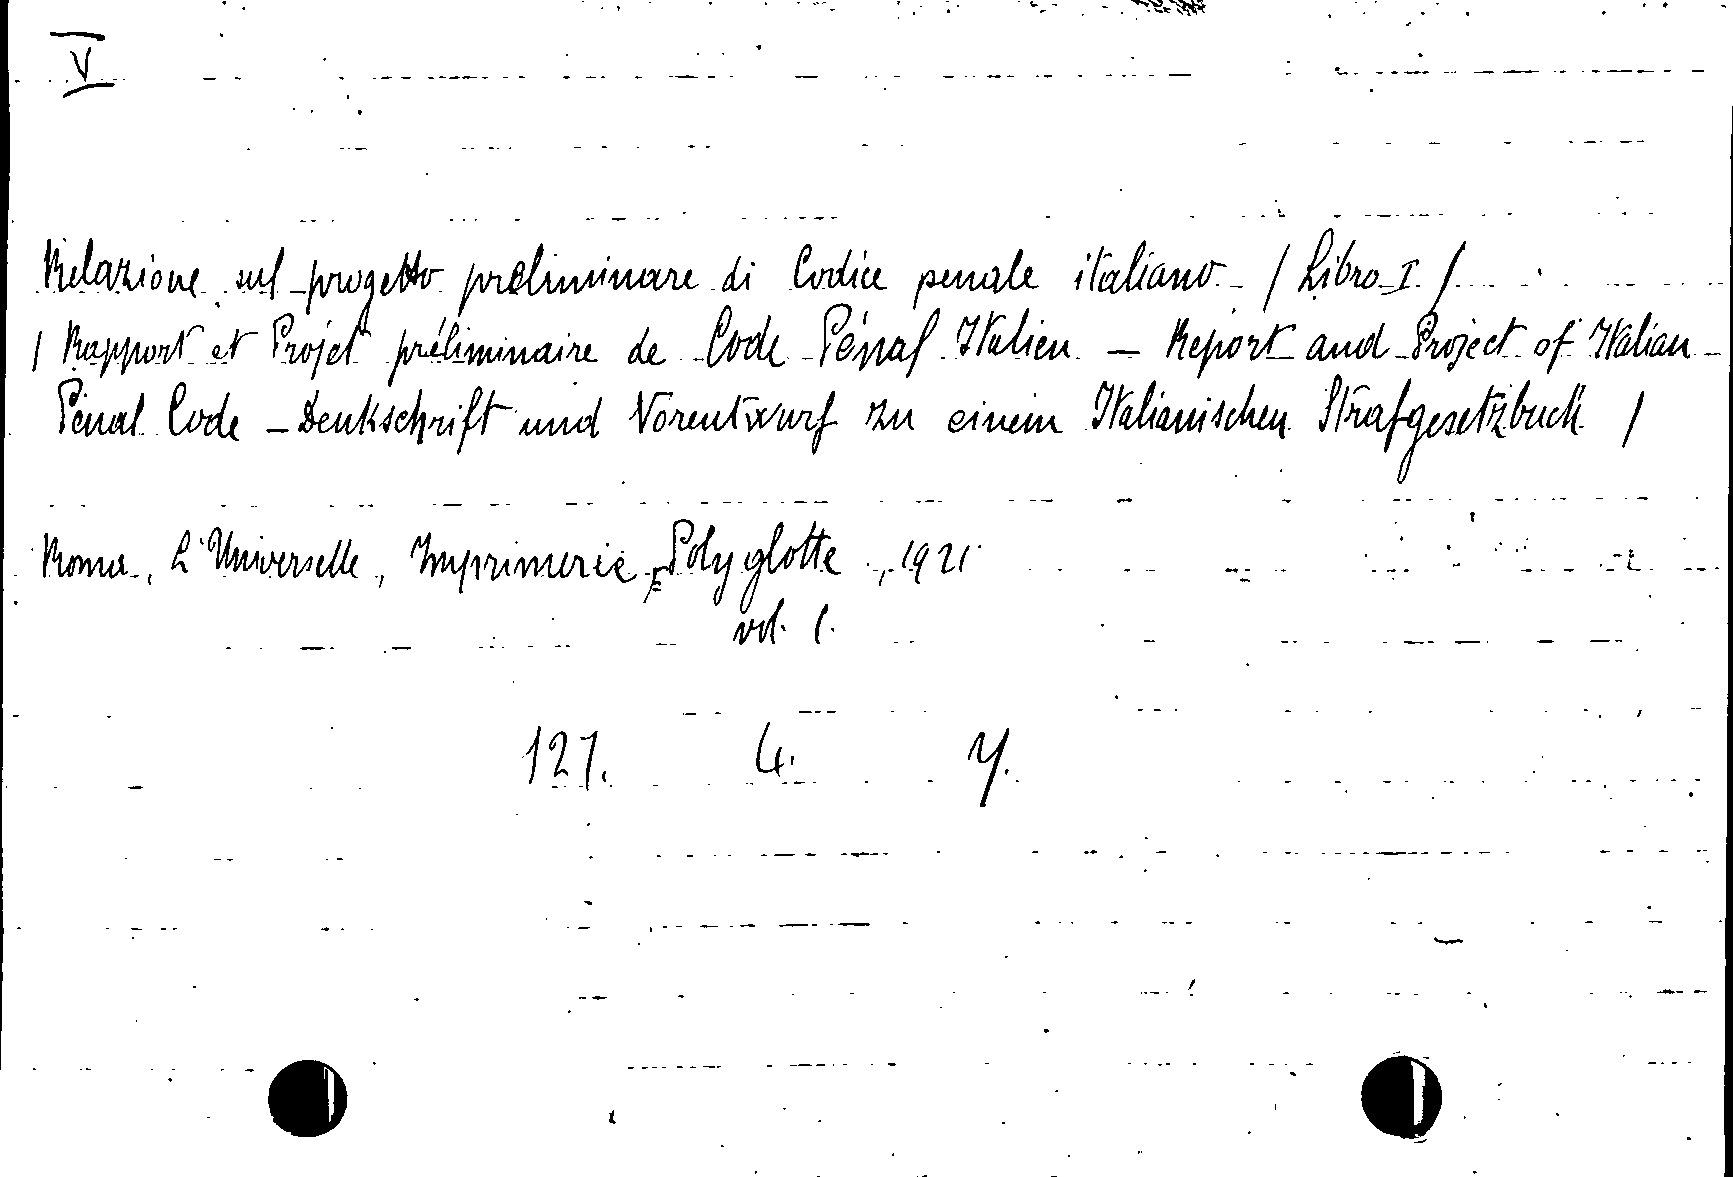 V
Relazione sul progetto preliminare di Codice penale italiano / Libro I /
/ Rapport et Projet préliminaire de Code Pénal Italien – Report and Project of Italian
Pénal Code – Denkschrift und Vorentwurf zu einem Italianischen Strafgesetzbuch /
Roma, L'Universelle, Imprimerie Polyglotte, 1921
vol. 1.
127. 4. 7.